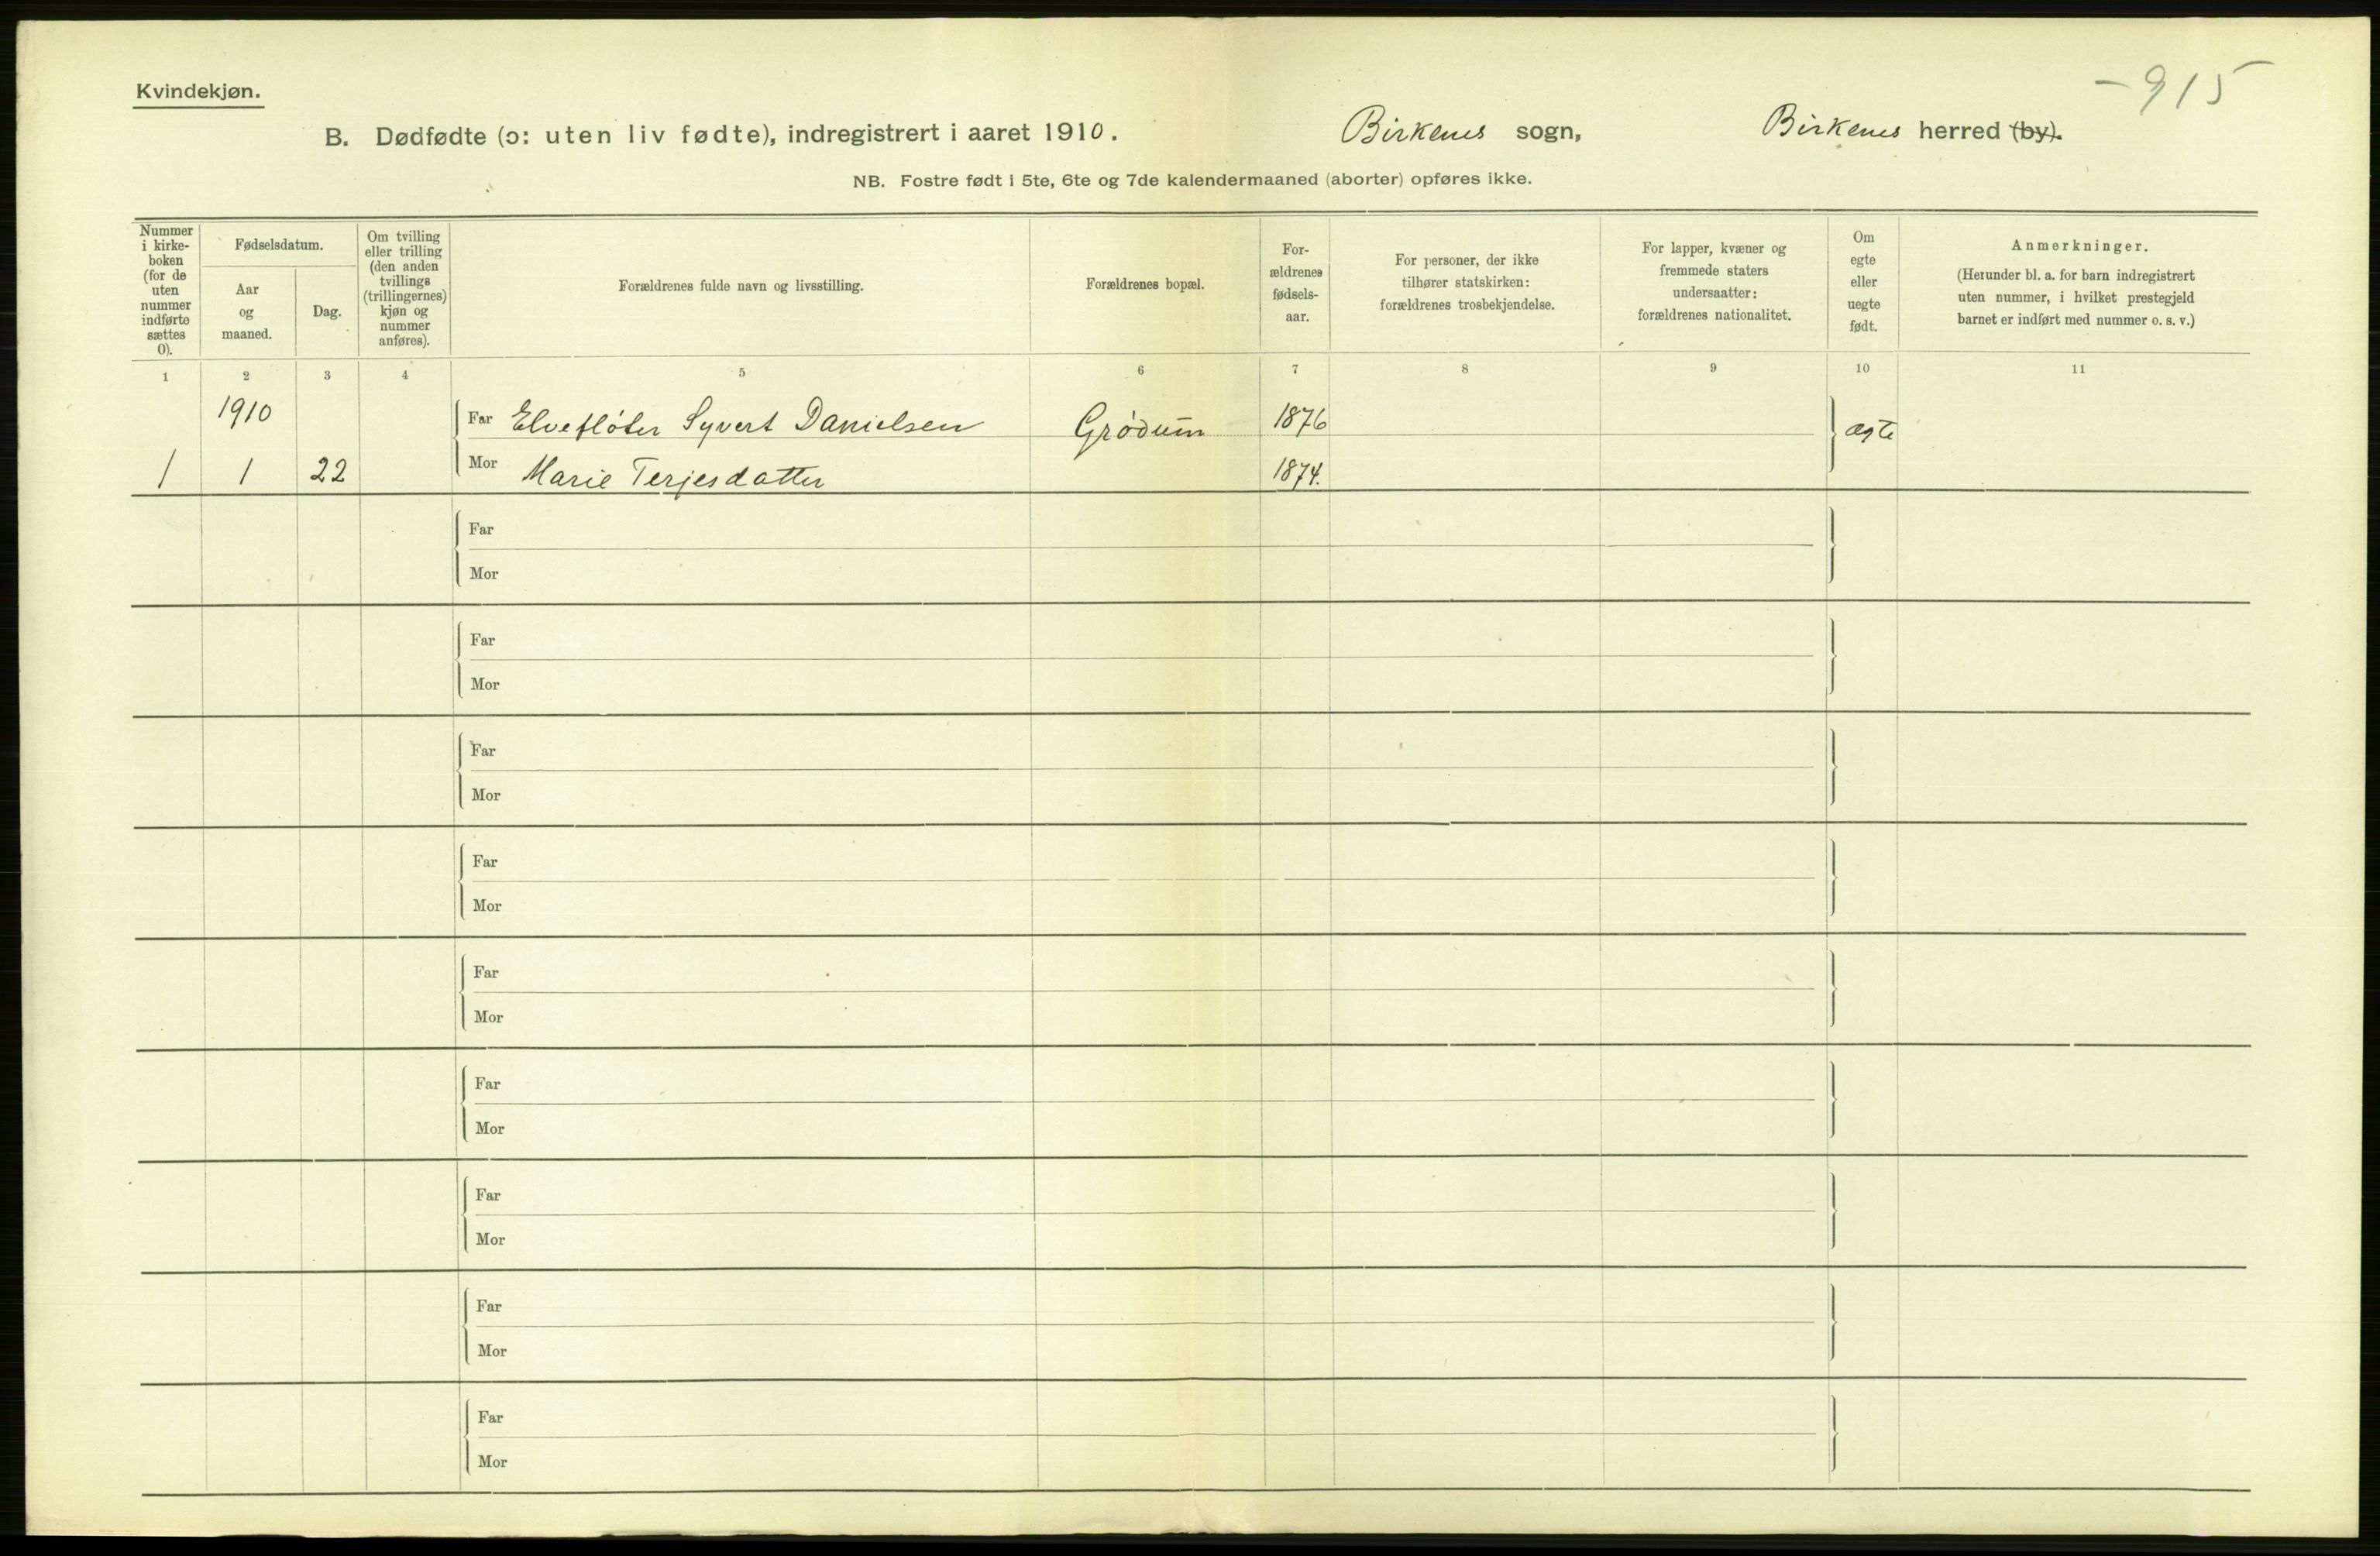 Kvindekjøn.
-915
B. Dødfødte (ɔ: uten liv fødte), indregistrert i aaret 1910. Birkenes sogn, Birkenes herred (by).
NB. Fostre født i 5te, 6te og 7de kalendermaaned (aborter) opføres ikke.
Nummer
i kirke-
boken
(for de
uten
nummer
indførte
sættes
0).
Fødselsdatum.
Aar
og
maaned.
Dag.
Om tvilling
eller trilling
(den anden
tvillings
(trillingernes)
kjøn og
nummer
anføres).
Forældrenes fulde navn og livsstilling.
Forældrenes bopæl.
For-
ældrenes
fødsels-
aar.
For personer, der ikke
tilhører statskirken:
forældrenes trosbekjendelse.
For lapper, kvæner og
fremmede staters
undersaatter:
forældrenes nationalitet.
Om
egte
eller
uegte
født.
Anmerkninger.
(Herunder bl. a. for barn indregistrert
uten nummer, i hvilket prestegjeld
barnet er indført med nummer o. s. v.)
1 2 3 4 5 6 7 8 9 10 11
1910 Far Elvefløter Syvert Danielsen Grødum 1876 ægte
1 1 22 Mor Marie Terjesdatter 1874.
Far
Mor
Far
Mor
Far
Mor
Far
Mor
Far
Mor
Far
Mor
Far
Mor
Far
Mor
Far
Mor